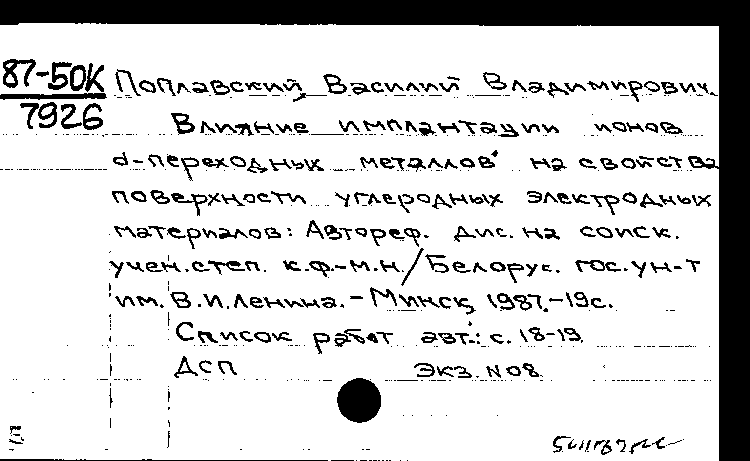 87-50К
7926
Поплавский Василий Владимирович.
Влияние имплантации ионов
d-переходных металлов на свойства
поверхности углеродных электродных
материалов: Автореф. дис. на соиск.
учен. степ. к.ф.-м.н./Белорус. гос. ун-т
им. В.И.Ленина. - Минск, 1987. - 19с.
Список работ авт.: с. 18-19
ДСП Экз. N08